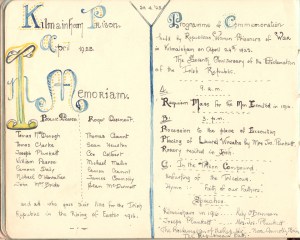 Kilmainham Prison.
April 1923.
In Memoriam.
Padraic Pearse Roger Casement
Thomas McDonagh Thomas Kent
Tomas Clarke Sean Heuston
Joseph Plunkett Con Colbert
William Pearse Michael Mallin
Edward Daly Eamonn Ceannt
Michael O'Hanrahan James Connolly
John McBride Sean McDermott
and all who gave their lives for the Irish
Republic in the Rising of Easter 1916.
24.4.'23
Programme of Commemoration
held by Republican Women Prisoners of War
in Kilmainham on April 24th 1923.
The Seventh Anniversary of the Proclamation
of the Irish Republic.
A. 9 a.m.
Requiem Mass for 6 Men Executed in 1916
B. 3 p.m.
Procession to the place of Execution
Placing of Laurel Wreaths by Mrs Jo. Plunkett
Rosary recited in Irish
C. In the Prison Compound.
Unfurling of the Tricolour
Hymn Faith of our Fathers.
Speeches
Kilmainham in 1916 Lily O'Brennan
Joseph Plunkett Plunkett